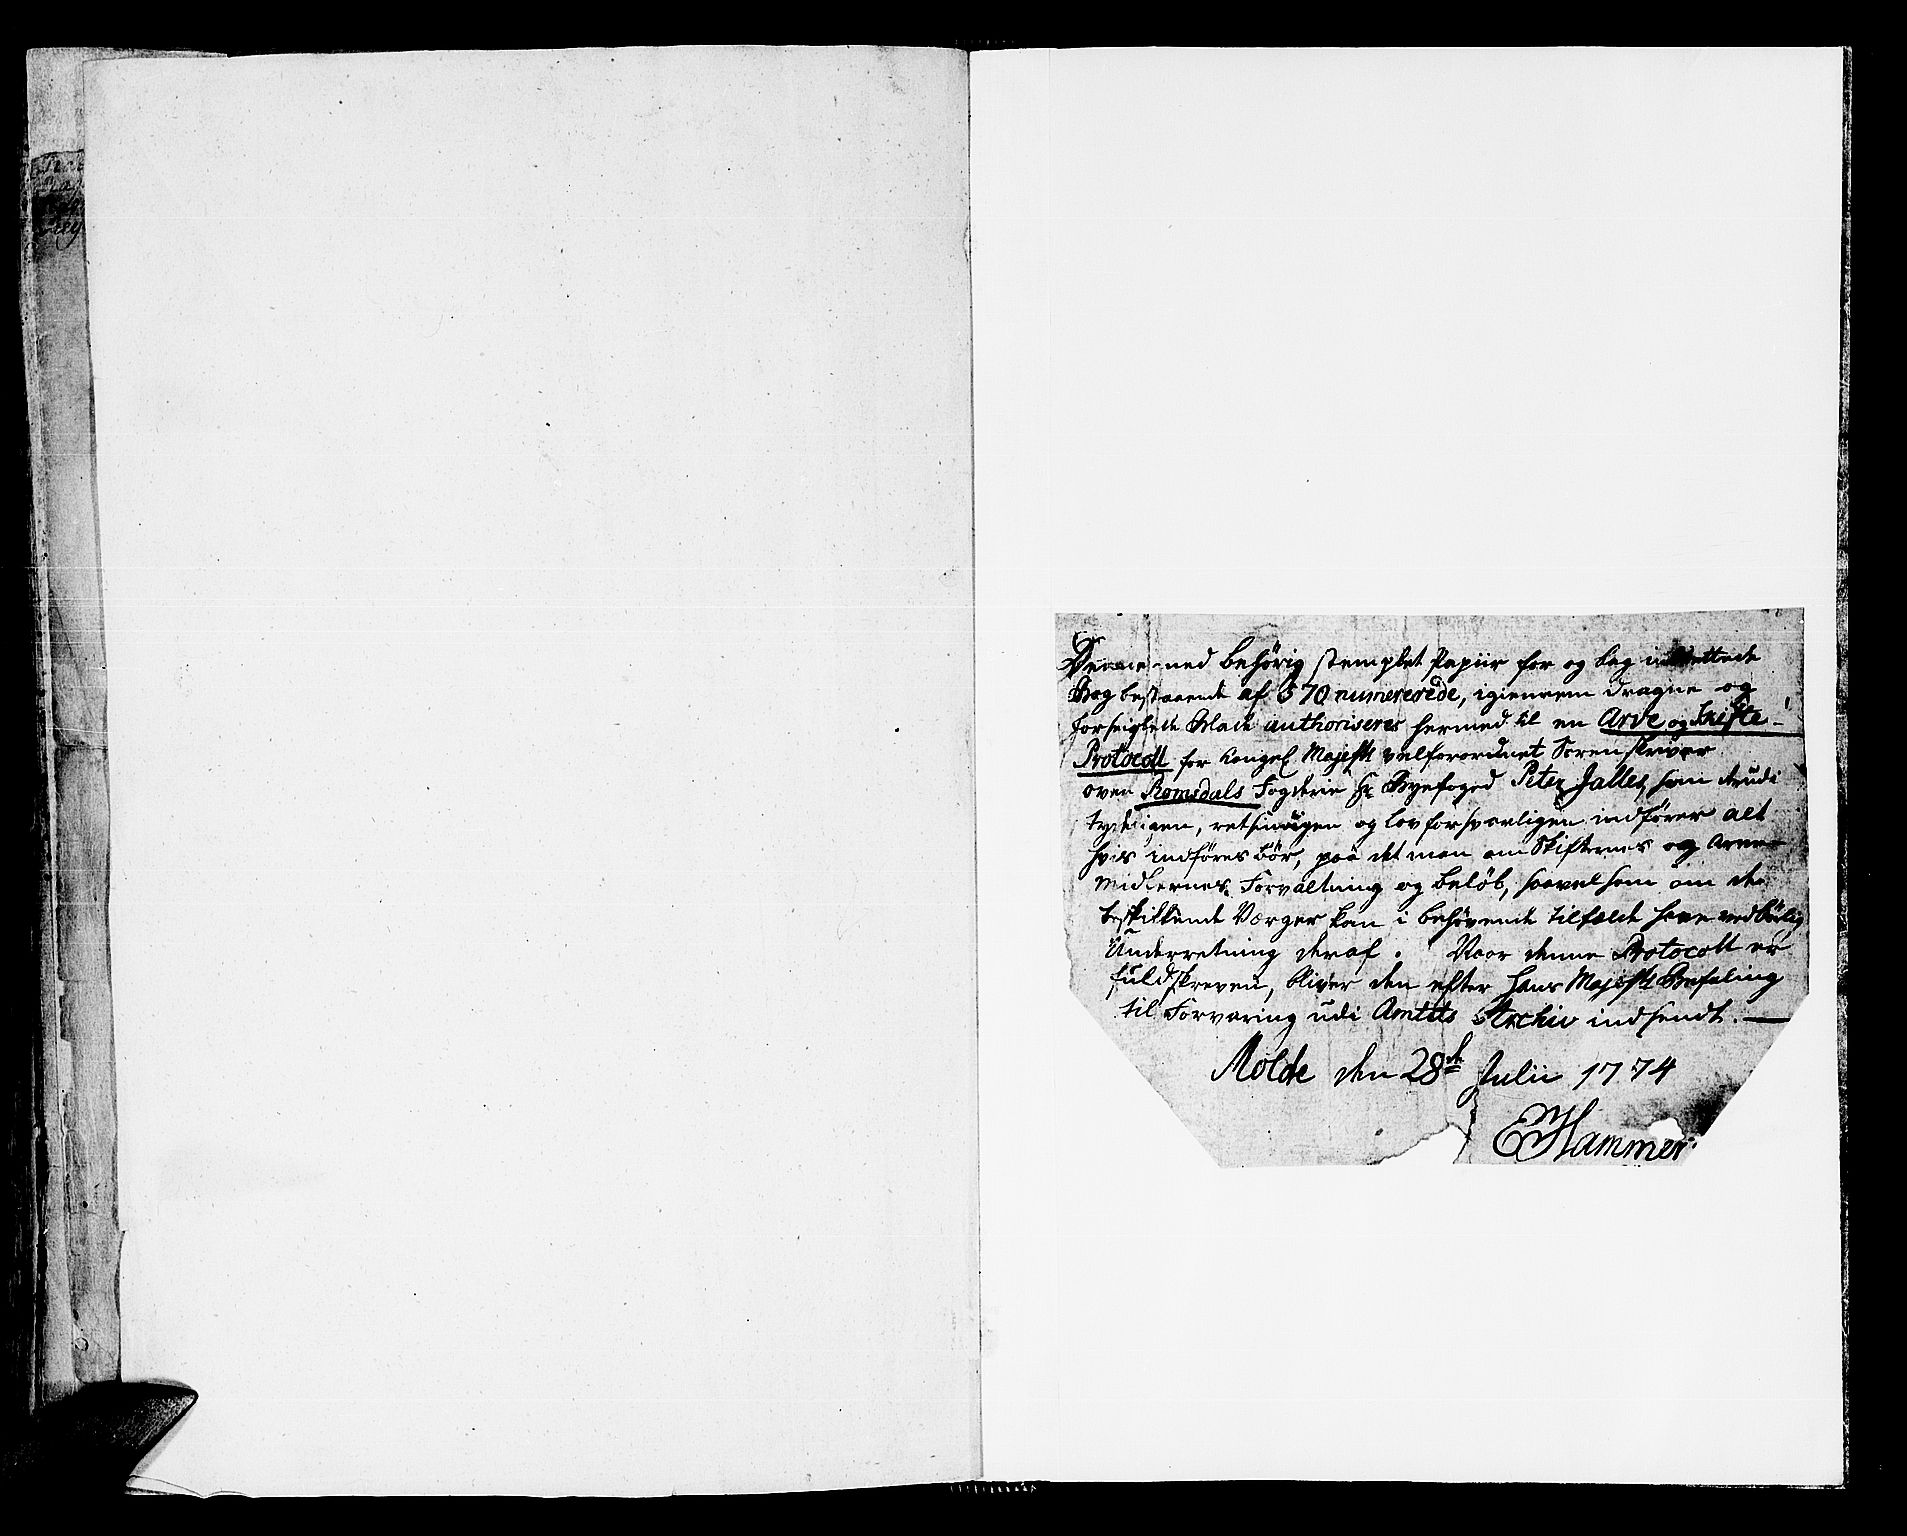 Denne med behörig stemplet Papiir for og bag indhettede
Bog bestaaende af 370 numererede, igiennem dragne og
forseiglede Blade authoriseres hermed til en Arve og Skifte-
Protocoll for Kongel Majests velforordnet Sorenskriver
over Romsdals Fogderie Hr Byefoged Peter Jalles, som derudi
tydeligen, retsindigen og lovforsvarligen indfører alt
hvis indføres bör, paa det man om Skifternes og Arve-
Midlernes Forvaltning og beløb, saavelsom om de
beskikkende Værger kan i behøvende tilfælde have ved börlig
Underretning deraf. Naar denne Protocoll er
fuldskreven, bliver den efter Hans Majests Befaling
til Forvaring udi Amtets Archiv indsendt.
Molde den 28de Julii 1774
EHammer